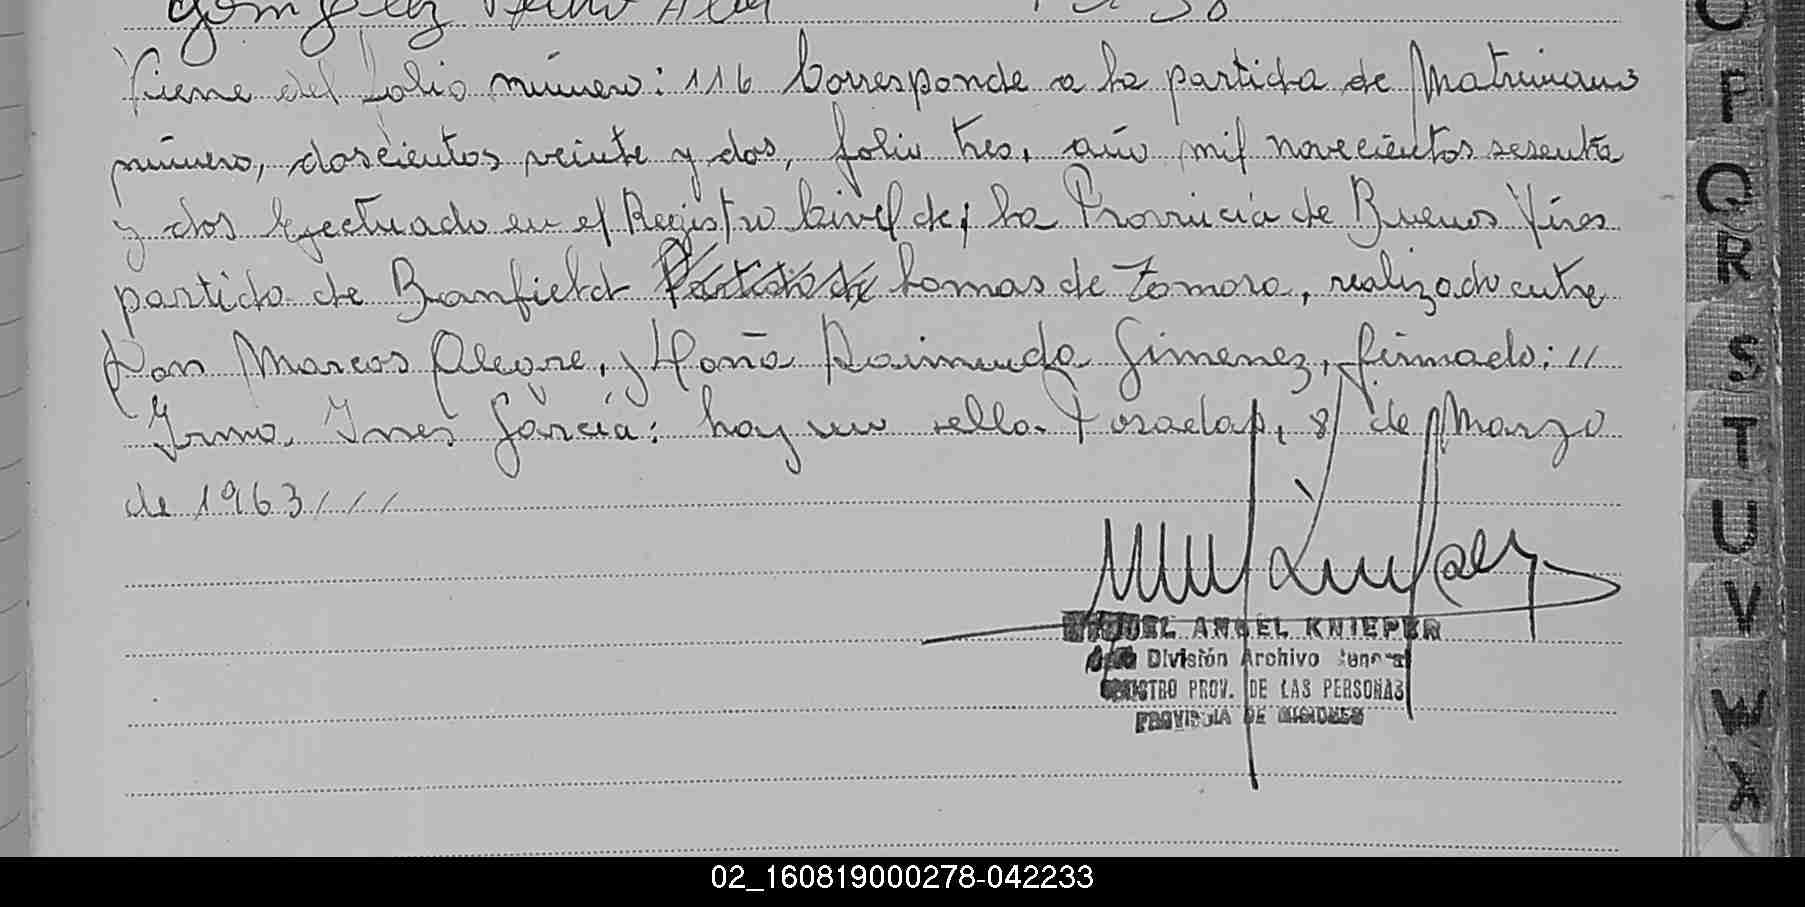 Gonzalez
Viene del folio número: 116 Corresponde a la partida de Matrimonio
número, doscientos veinte y dos, folio tres, año mil novecientos sesenta
y dos Efectuado en el Registro Civil de la Provincia de Buenos Aires
partido de Banfield Partido de Lomas de Zamora, realizado entre
Don Marcos Alegre, y Doña Raimunda Gimenez, firmado: //
Irma Ines Garcia: hay un sello. Posadas, 8 de Marzo
de 1963///
MIGUEL ANGEL KNIEPER
División Archivo General
REGISTRO PROV. DE LAS PERSONAS
PROVINCIA DE MISIONES
O
P
Q
R
S
T
U
V
W
X
02_160819000278-042233